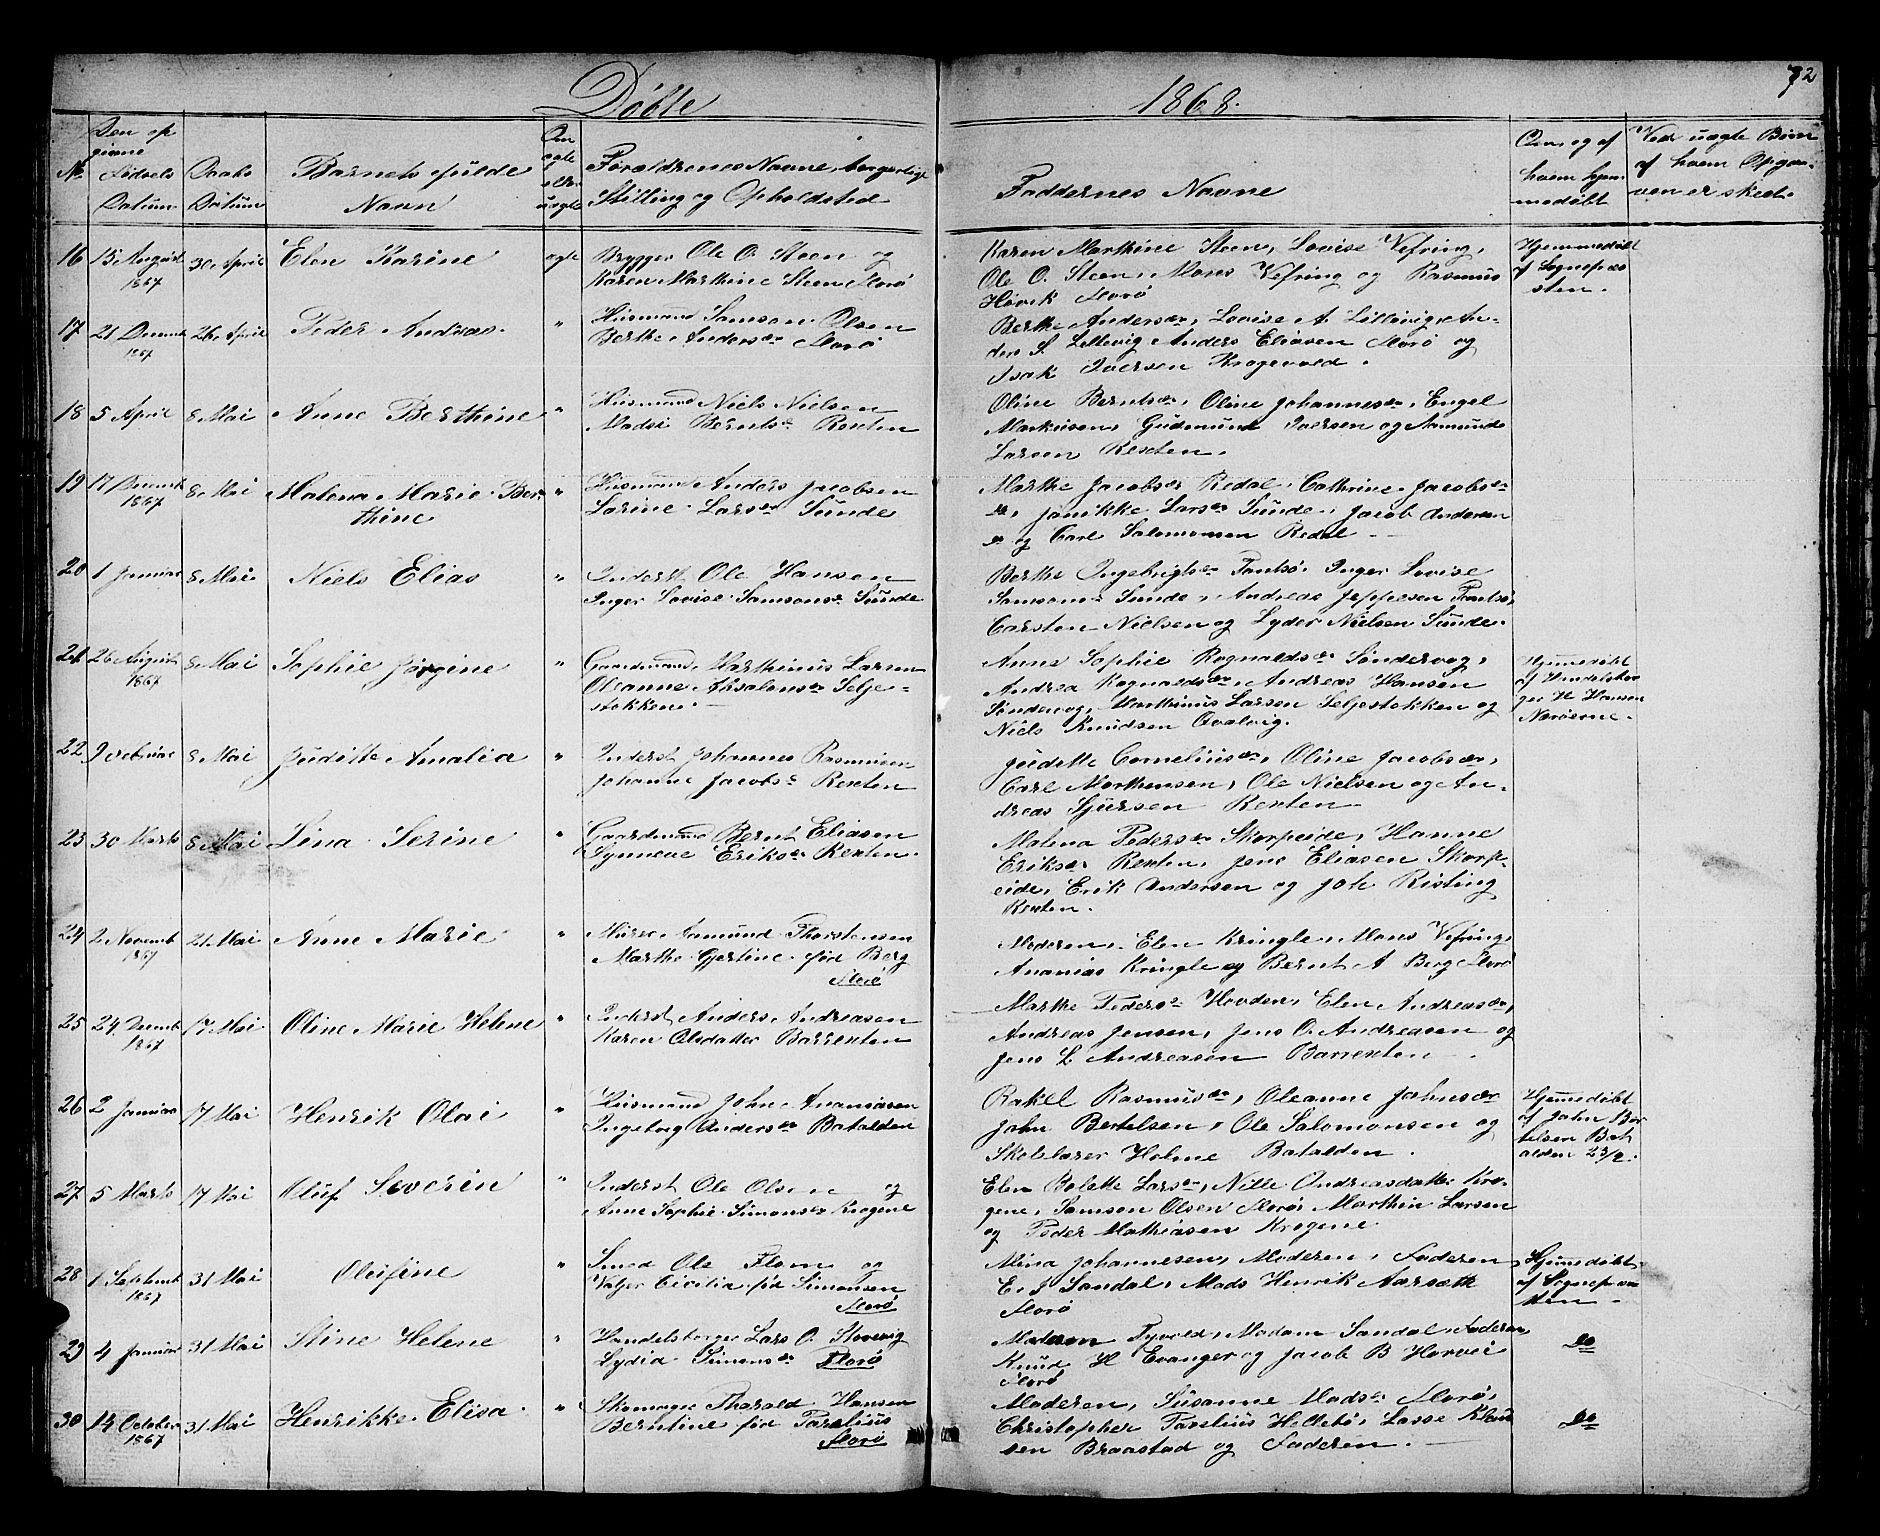 Døbte
1868.
72
No
Den op
givne
Fødsels
Datum
Daabs
Datum
Barnets fulde
Navn
Om
ægte
eller
uægte
Forældrenes Navne, borgerlige
Stilling og Opholdsted
Faddernes Navne
Om og af
hvem hjem
medøbt
Ved uægte Børn
af hvem Opga-
ven er skeet.
16 15 August 30 April Elen Karine ægte Brygger Ole O. Steen og
1867 Karen Marthine Steen Florø
Karen Marthine Steen, Lovise Vefring,
Ole O. Steen, Mons Vefring og Rasmus
Høvik Florø
Hjemmedøbt
af Sognepræ
sten.
17 21 Decemb 26 April Peder Andreas " Husmand Samson Olsen
1867 Berthe Andersdr Florø
Berthe Andersdr, Lovise A. Lillevig, An-
ders S. Lillevig, Anders Eliasen Florø og
Isak Iversen Krogevold.
18 5 April 8 Mai Anne Berthine " Husmand Niels Nielsen
Madsi Berntsdr Rexten
Oline Berntsdr, Oline Johannesdr, Engel
Markusen, Gudmund Iversen og Aamund
Larsen Rexten.
19 17 Decemb 8 Mai Malena Marie Ber- " Husmand Anders Jacobsen
1867 thine Larine Larsdr Sunde
Marthe Jacobsdr Redal, Cathrine Jacobsdr
do, Janikke Larsdr Sunde, Jacob Andersen
do og Carl Salomonsen Redal
20 1 Januar 8 Mai Niels Elias " Inderst Ole Hansen
Inger Lovise Samsonsdr Sunde
Berthe Ingebrigtsdr Tansø, Inger Lovise
Samsonsdr Sunde, Andreas Jeppesen Tansø,
Carsten Nielsen og Lyder Nielsen Sunde.
21 26 August 8 Mai Sophie Jørgine " Gaardmand Marthinus Larsen
1867 Oleanne Absalonsdr Selje-
stokken.
Anne Sophie Rognaldsdr Søndervog,
Andrea Rognaldsdr, Andreas Hansen
Søndervog, Marthinus Larsen Seljestokken og
Niels Knudsen Qvalvig.
Hjemmedøbt
af Handelsbor
ger H. Hansen
Nærøerne.
22 9 Februar 8 Mai Juditte Amalia " Inderst Johannes Rasmussen
Johanne Jacobsdr Rexten
Juditte Corneliusdr, Oline Jacobsdr,
Carl Morthensen, Ole Nielsen og An-
dreas Sjursen Rexten
23 30 Marts 8 Mai Lina Serine " Gaardmand Bernt Eliasen
Synneve Eriksdr Rexten.
Malena Pedersdr Skorpeide, Hanne
Eriksdr Rexten, Jens Eliasen Skorp-
eide, Erik Andersen og Joh Risting
Rexten.
24 2 Novemb 21 Mai Anne Marie " Murer Aamund Thorstensen
1867 Marthe Gjertine før Berg
Florø
Moderen, Elen Kringle, Mons Vefring,
Ananias Kringle og Bernt A Berg Florø
25 24 Decemb 17 Mai Oline Marie Helene " Inderst Anders Andreasen
1867 Karen Olsdatter Barrexten
Marthe Pedersdr Hovden, Elen Andreasdr,
Andreas Jensen, Jens O. Andreasen og
Jens L. Andreasen Barrexten
26 2 Januar 17 Mai Henrik Olai " Husmand John Ananiasen
Ingeborg Andersdr Batalden
Rakel Rasmusdr, Oleanne Johnsdr
John Bertelsen, Ole Salomonsen og
Skolelærer Holme Batalden.
Hjemmedøbt
af John Ber
telsen Bat
alden 23/2.
27 5 Marts 17 Mai Oluf Severin " Inderst Ole Olsen og
Anne Sophie Simonsdr Krogene
Elen Bolette Larsdr, Nille Andreasdatter Kro-
gene, Samson Olsen Florø, Marthin Larsen
og Peder Mathiasen Krogene
28 1 Septemb 31 Mai Olufine " Smed Ole Flom og
1867 Valger Cicilia før Simonsen
Florø
Mina Johannesen, Moderen, Faderen
E. J Sandal, Mads Henrik Aarsæth
Florø
Hjemmedøbt
af Sognepræ
sten
29 4 Januar 31 Mai Stine Helene " Handelsborger Lars O. Storevig
Lydia Simonsdr Florø
Madam Tyvold, Madam Sandal, Faderen,
Knud H Evanger og Jacob B Horvei
Florø
do
30 14 October 31 Mai Henrikke Elisa. " Skomager Tharald Hansen
1867 Berntine før Parelius
Florø
Moderen, Susanne Madsdr Florø,
Christopher Parelius Hellebø, Lasse Knud
sen Braastad og Faderen.
do